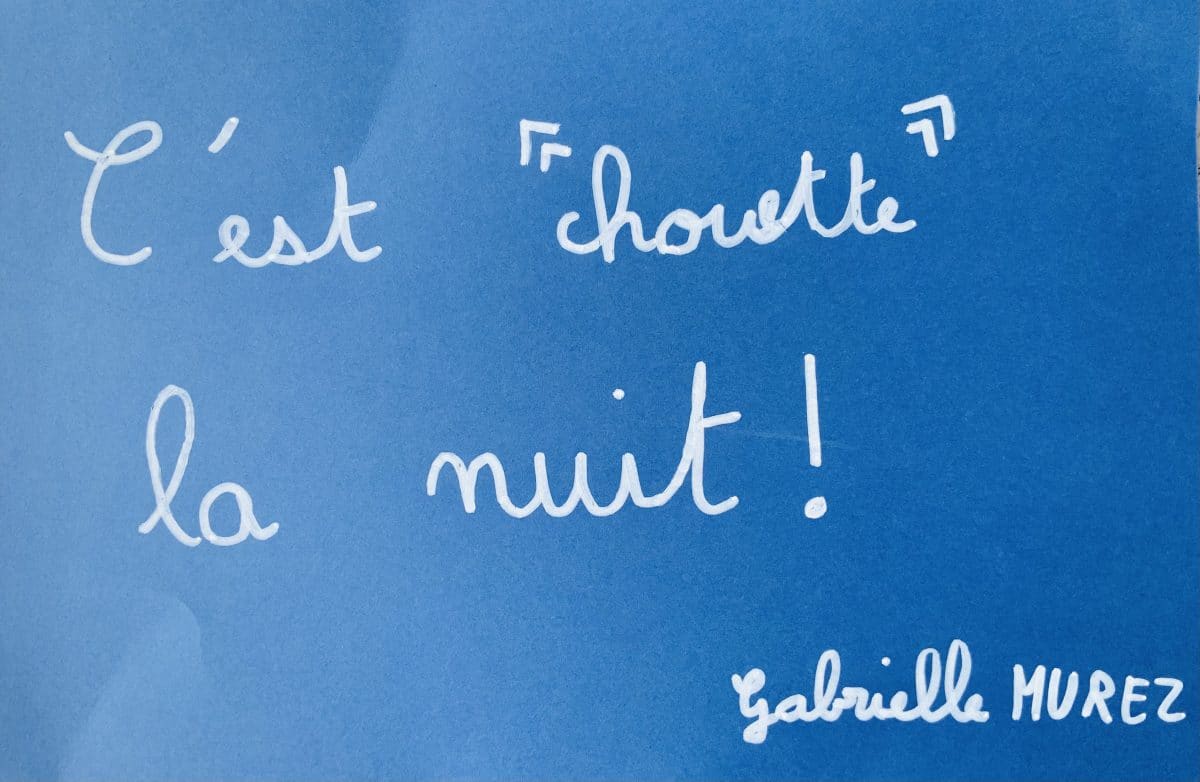 C'est "chouette"
la nuit !
Gabrielle MUREZ